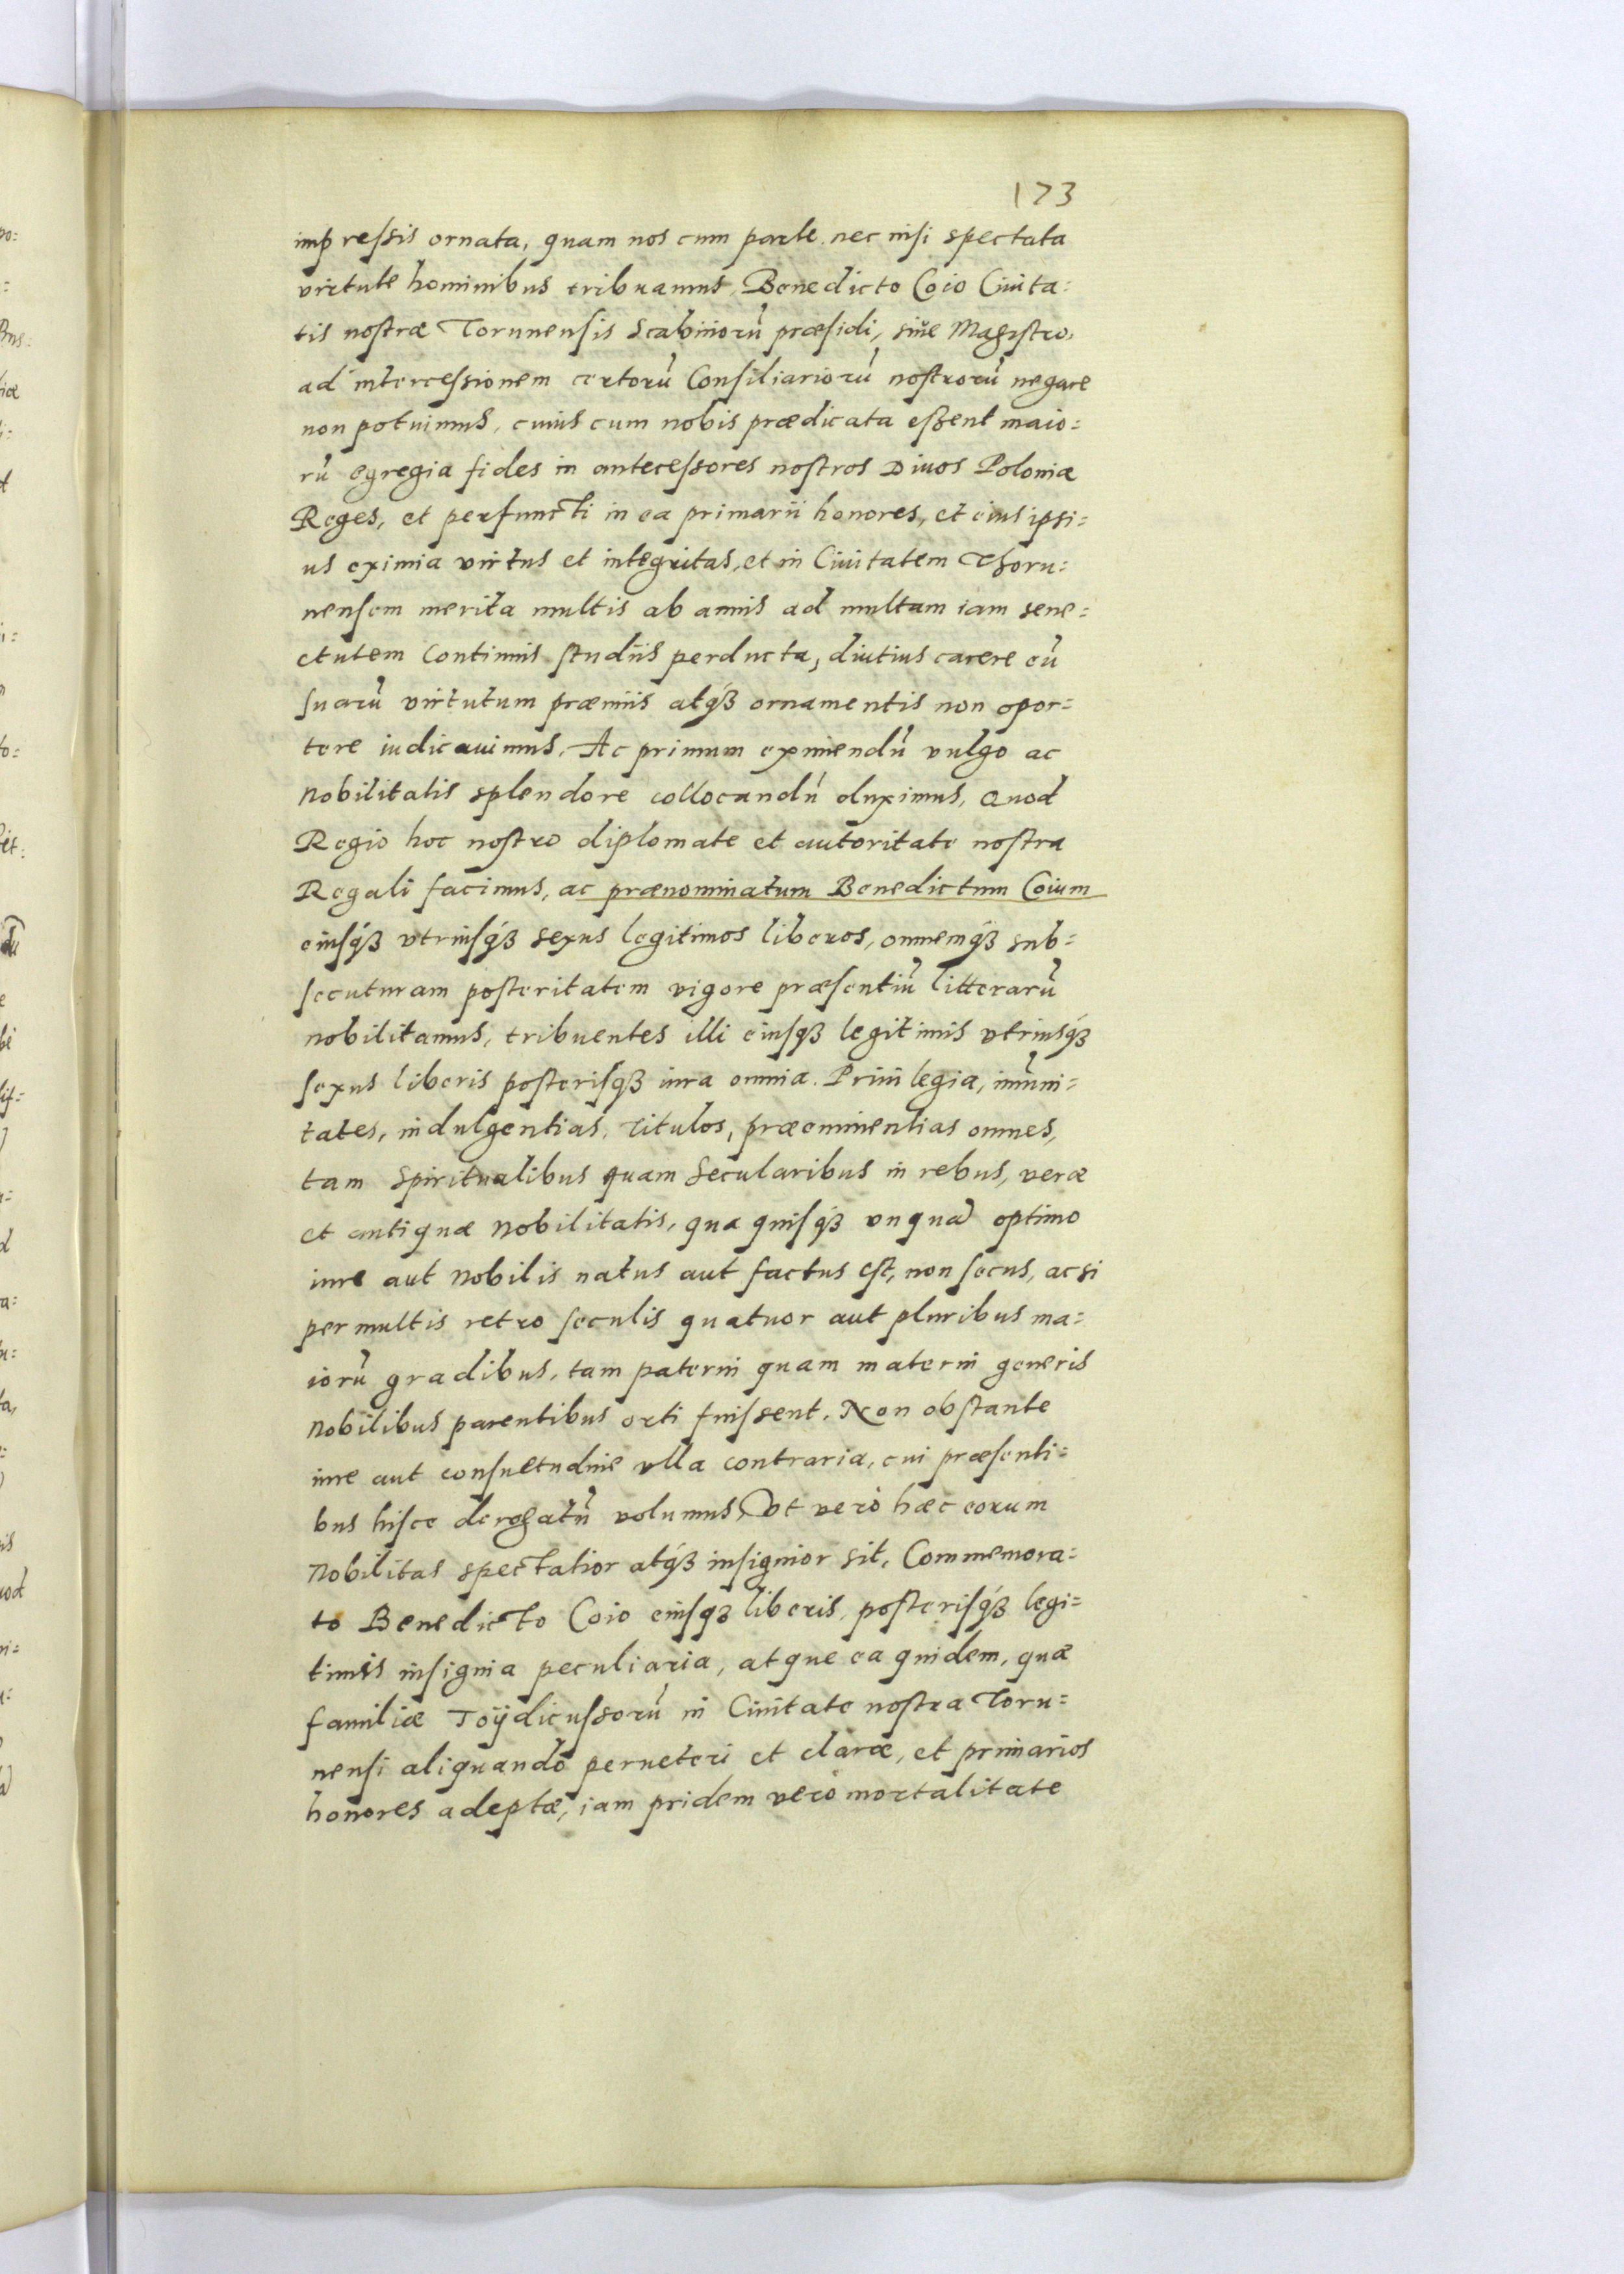 173
impressis ornata, quam nos cum parte nec nisi spectata
virtute hominibus tribuamus, Benedicto Coio Ciuita=
tis nostræ Torunensis Scabinorũ præsidi, siue Magistro,
ad intercessionem certorũ Consiliariorũ nostrorũ negare
non potuimus, cuius cum nobis prædicata essent maio=
rũ egregia fides in antecessores nostros Diuos Poloniæ
Reges, et perfuncti in ea primarii honores, et eius ipsi=
us eximia virtus et integritas, et in Ciuitatem Thoru=
nensem merita multis ab annis ad multam iam sene=
ctutem Continuis studiis perducta, diutius carere eũ
suarũ virtutum præmiis atq́ꝫ ornamentis non opor=
tere iudicauimus. Ac primum eximendũ vulgo ac
Nobilitatis splendore collocandũ duximus, Quod
Regio hoc nostro diplomate et autoritate nostra
Regali facimus, ac prænominatum Benedictum Coium
eiusq́ꝫ vtriusq́ꝫ sexus legitimos liberos, omnemq́ꝫ sub=
secuturam posteritatem vigore præsentiũ litterarũ
nobilitamus, tribuentes illi eiusqꝫ legitimis vtriusq́ꝫ
sexus liberis posterisqꝫ iura omnia. Priuilegia, imũni=
tates, indulgentias, Titulos, præeminentias omnes,
tam Spiritualibus quam Secularibus in rebus, veræ
et antiquæ Nobilitatis, qua quisq́ꝫ vnquã optimo
iure aut Nobilis natus aut factus est, non secus, acsi
per multis retro seculis quatuor aut pluribus ma=
iorũ gradibus, tam paterni quam materni generis
Nobilibus parentibus orti fuissent. Non obstante
iure aut consuetudine vlla contraria, cui præsenti=
bus hisce derogatũ volumus, Vt verò hæc eorum
Nobilitas spectatior atq́ꝫ insignior sit, Commemora=
to Benedicto Coio eiusqꝫ liberis, posterisq́ꝫ legi=
timis insignia peculiaria, atque ea quidem, quæ
familiæ Toÿdicussorũ in Ciuitate nostra Toru=
nensi aliquando perueteri et claræ, et primarios
honores adeptæ, iam pridem verò mortalitate